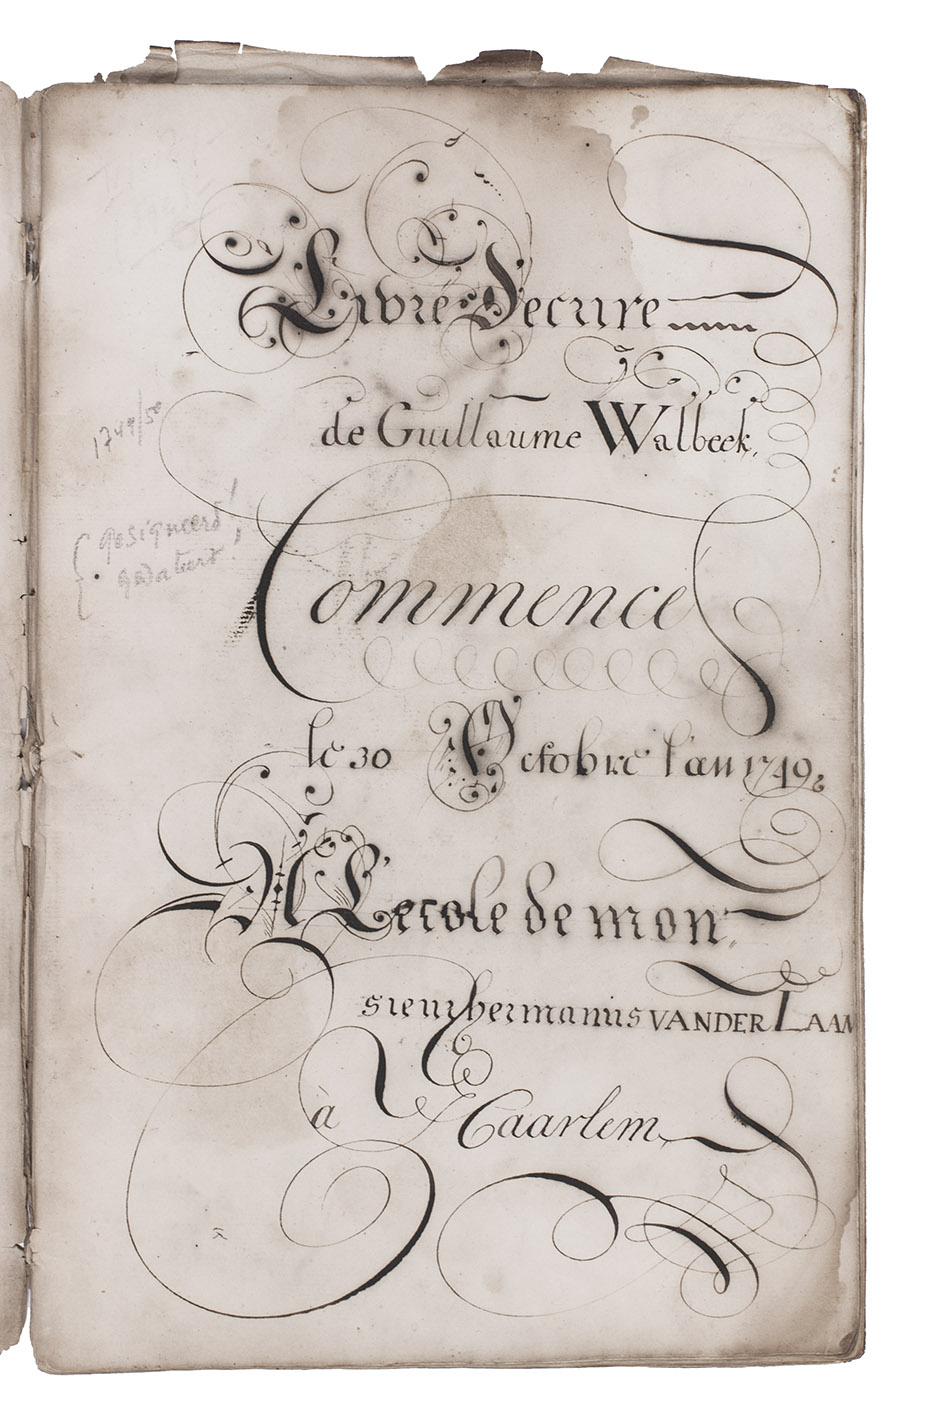 Livre Decrire
de Guillaume Walbeek.
1749/50
gesigneerd!
gedateert
Commence
le 30 Octobre l'an 1749
A L'ecole de mon
sieur hermanus VANDER LAAN
à Haarlem